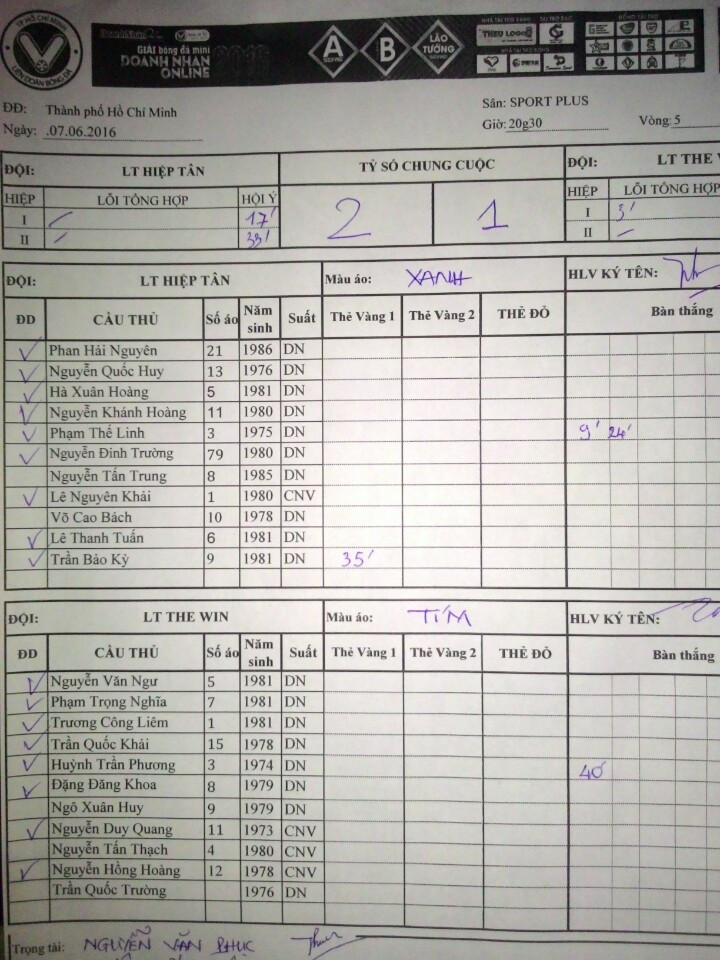 TP HỒ CHÍ MINH
LIÊN ĐOÀN BÓNG ĐÁ
GIẢI bóng đá mini
DOANH NHÂN
ONLINE
A
B
LÃO
TƯỚNG
ĐĐ: Thành phố Hồ Chí Minh
Sân: SPORT PLUS
Ngày: .07.06.2016
Giờ: 20g30
Vòng: 5
ĐỘI: LT HIỆP TÂN
TỶ SỐ CHUNG CUỘC
ĐỘI: LT THE
HIỆP LỖI TỔNG HỢP HỘI Ý
2 1
HIỆP LỖI TỔNG HỢP
I 17' I 3'
II 33' II
ĐỘI: LT HIỆP TÂN Màu áo: XANH HLV KÝ TÊN:
ĐD CẦU THỦ Số áo Năm sinh Suất Thẻ Vàng 1 Thẻ Vàng 2 THẺ ĐỎ Bàn thắng
Phan Hải Nguyên 21 1986 DN
Nguyễn Quốc Huy 13 1976 DN
Hà Xuân Hoàng 5 1981 DN
Nguyễn Khánh Hoàng 11 1980 DN
Phạm Thế Linh 3 1975 DN 9' 24'
Nguyễn Đình Trường 79 1980 DN
Nguyễn Tấn Trung 8 1985 DN
Lê Nguyên Khải 1 1980 CNV
Võ Cao Bách 10 1978 DN
Lê Thanh Tuấn 6 1981 DN
Trần Bảo Kỳ 9 1981 DN 35'
ĐỘI: LT THE WIN Màu áo: TÍM HLV KÝ TÊN:
ĐD CẦU THỦ Số áo Năm sinh Suất Thẻ Vàng 1 Thẻ Vàng 2 THẺ ĐỎ Bàn thắng
Nguyễn Văn Ngư 5 1981 DN
Phạm Trọng Nghĩa 7 1981 DN
Trương Công Liêm 1 1981 DN
Trần Quốc Khải 15 1978 DN
Huỳnh Trần Phương 3 1974 DN 40'
Đặng Đăng Khoa 8 1979 DN
Ngô Xuân Huy 9 1979 DN
Nguyễn Duy Quang 11 1973 CNV
Nguyễn Tấn Thạch 4 1980 CNV
Nguyễn Hồng Hoàng 12 1978 CNV
Trần Quốc Trường 1976 DN
Trọng tài: NGUYỄN VĂN PHỤC